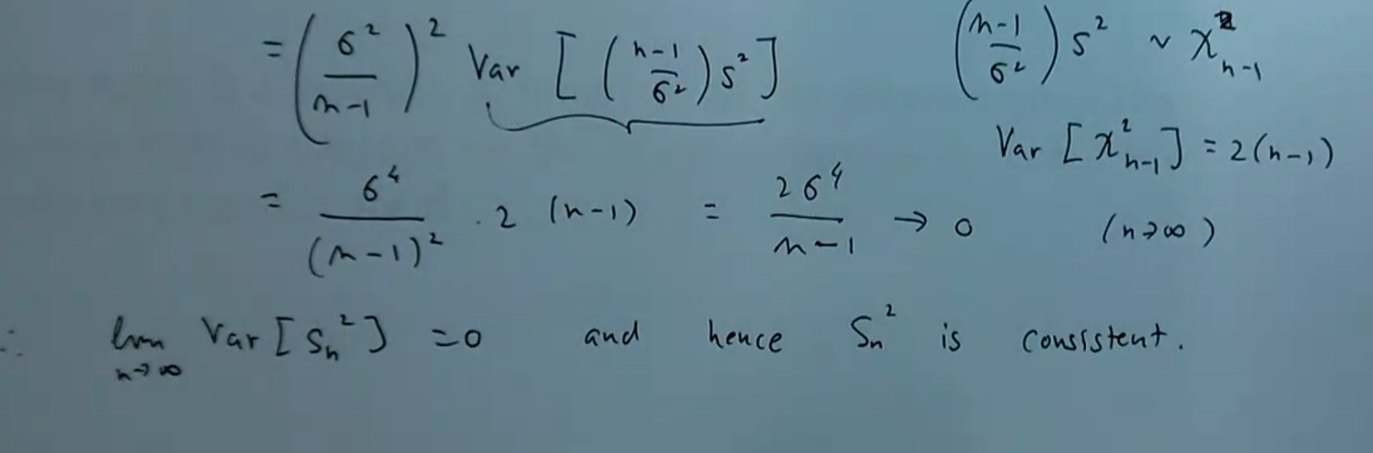 = (σ²/(n-1))² Var [ ((n-1)/σ²) s² ]    ((n-1)/σ²) s² ~ χ²ₙ₋₁
Var [χ²ₙ₋₁] = 2(n-1)
= σ⁴/(n-1)² · 2 (n-1) = 2σ⁴/(n-1) → 0    (n→∞)
∴ lim n→∞ Var [Sₙ²] = 0 and hence Sₙ² is consistent.